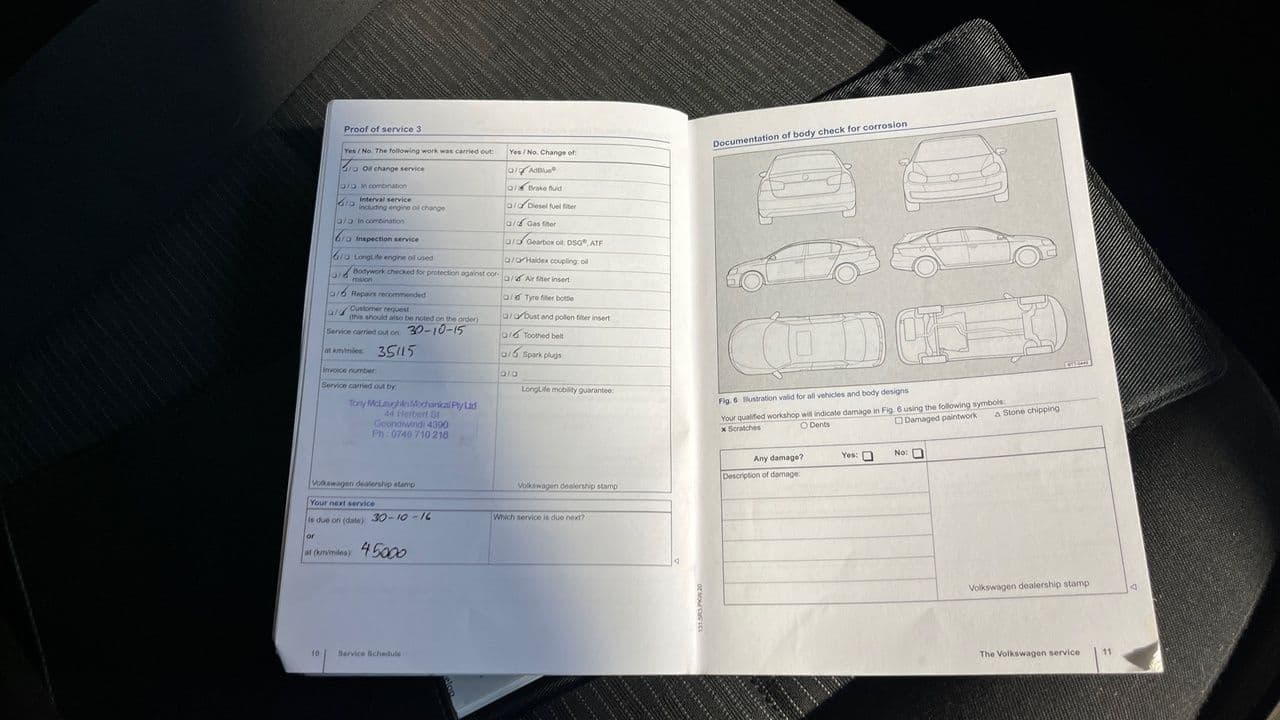 Proof of service 3
Yes / No. The following work was carried out:
Oil change service
In combination
Interval service
including engine oil change
In combination
Inspection service
LongLife engine oil used
Bodywork checked for protection against cor-
rosion
Repairs recommended
Customer request
(this should also be noted on the order)
Service carried out on: 30-10-15
at km/miles: 35115
Invoice number:
Service carried out by:
Tony McLaughlin Mechanical Pty Ltd
44 Herbert St
Goondiwindi 4390
Ph : 0746 710 216
Volkswagen dealership stamp
Yes / No. Change of:
AdBlue®
Brake fluid
Diesel fuel filter
Gas filter
Gearbox oil: DSG®, ATF
Haldex coupling: oil
Air filter insert
Tyre filler bottle
Dust and pollen filter insert
Toothed belt
Spark plugs
LongLife mobility guarantee:
Volkswagen dealership stamp
Your next service
Is due on (date): 30-10-16
or
at (km/miles): 45000
Which service is due next?
10 Service Schedule
Documentation of body check for corrosion
Fig. 6 Illustration valid for all vehicles and body designs
Your qualified workshop will indicate damage in Fig. 6 using the following symbols:
x Scratches O Dents □ Damaged paintwork △ Stone chipping
Any damage? Yes: □ No: □
Description of damage:
Volkswagen dealership stamp
The Volkswagen service 11